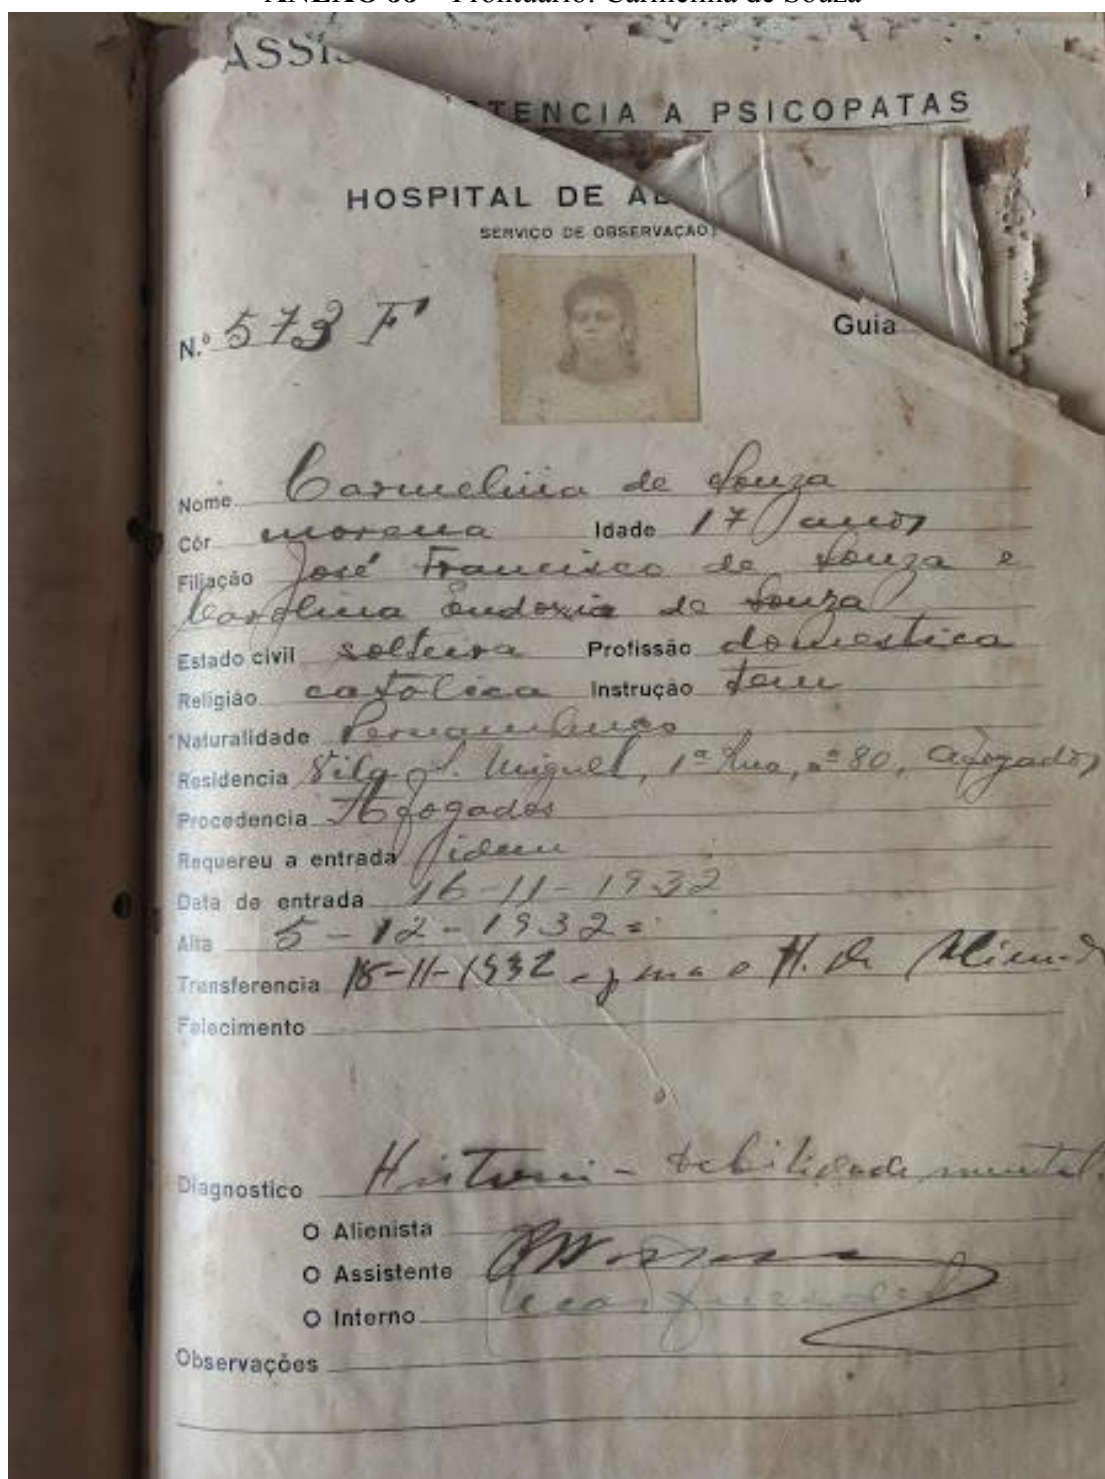 Prontuário: de Souza
ASSIS
TENCIA A PSICOPATAS
HOSPITAL DE AL
SERVIÇO DE OBSERVAÇÃO
N.º 573 F
Guia
Nome Carmelina de Souza
Côr morena Idade 17 annos
Filiação José Francisco de Souza e
Carolina Eudoxia de Souza
Estado civil solteira Profissão domestica
Religião catolica Instrução tem
Naturalidade Pernambuco
Residencia Vila S. Miguel, 1ª Rua, nº 80, Afogados
Procedencia Afogados
Requereu a entrada idem
Data de entrada 16-11-1932
Alta 5-12-1932
Transferencia 18-11-1932 H. de
Falecimento
Diagnostico debilidade mental.
O Alienista
O Assistente
O Interno
Observações